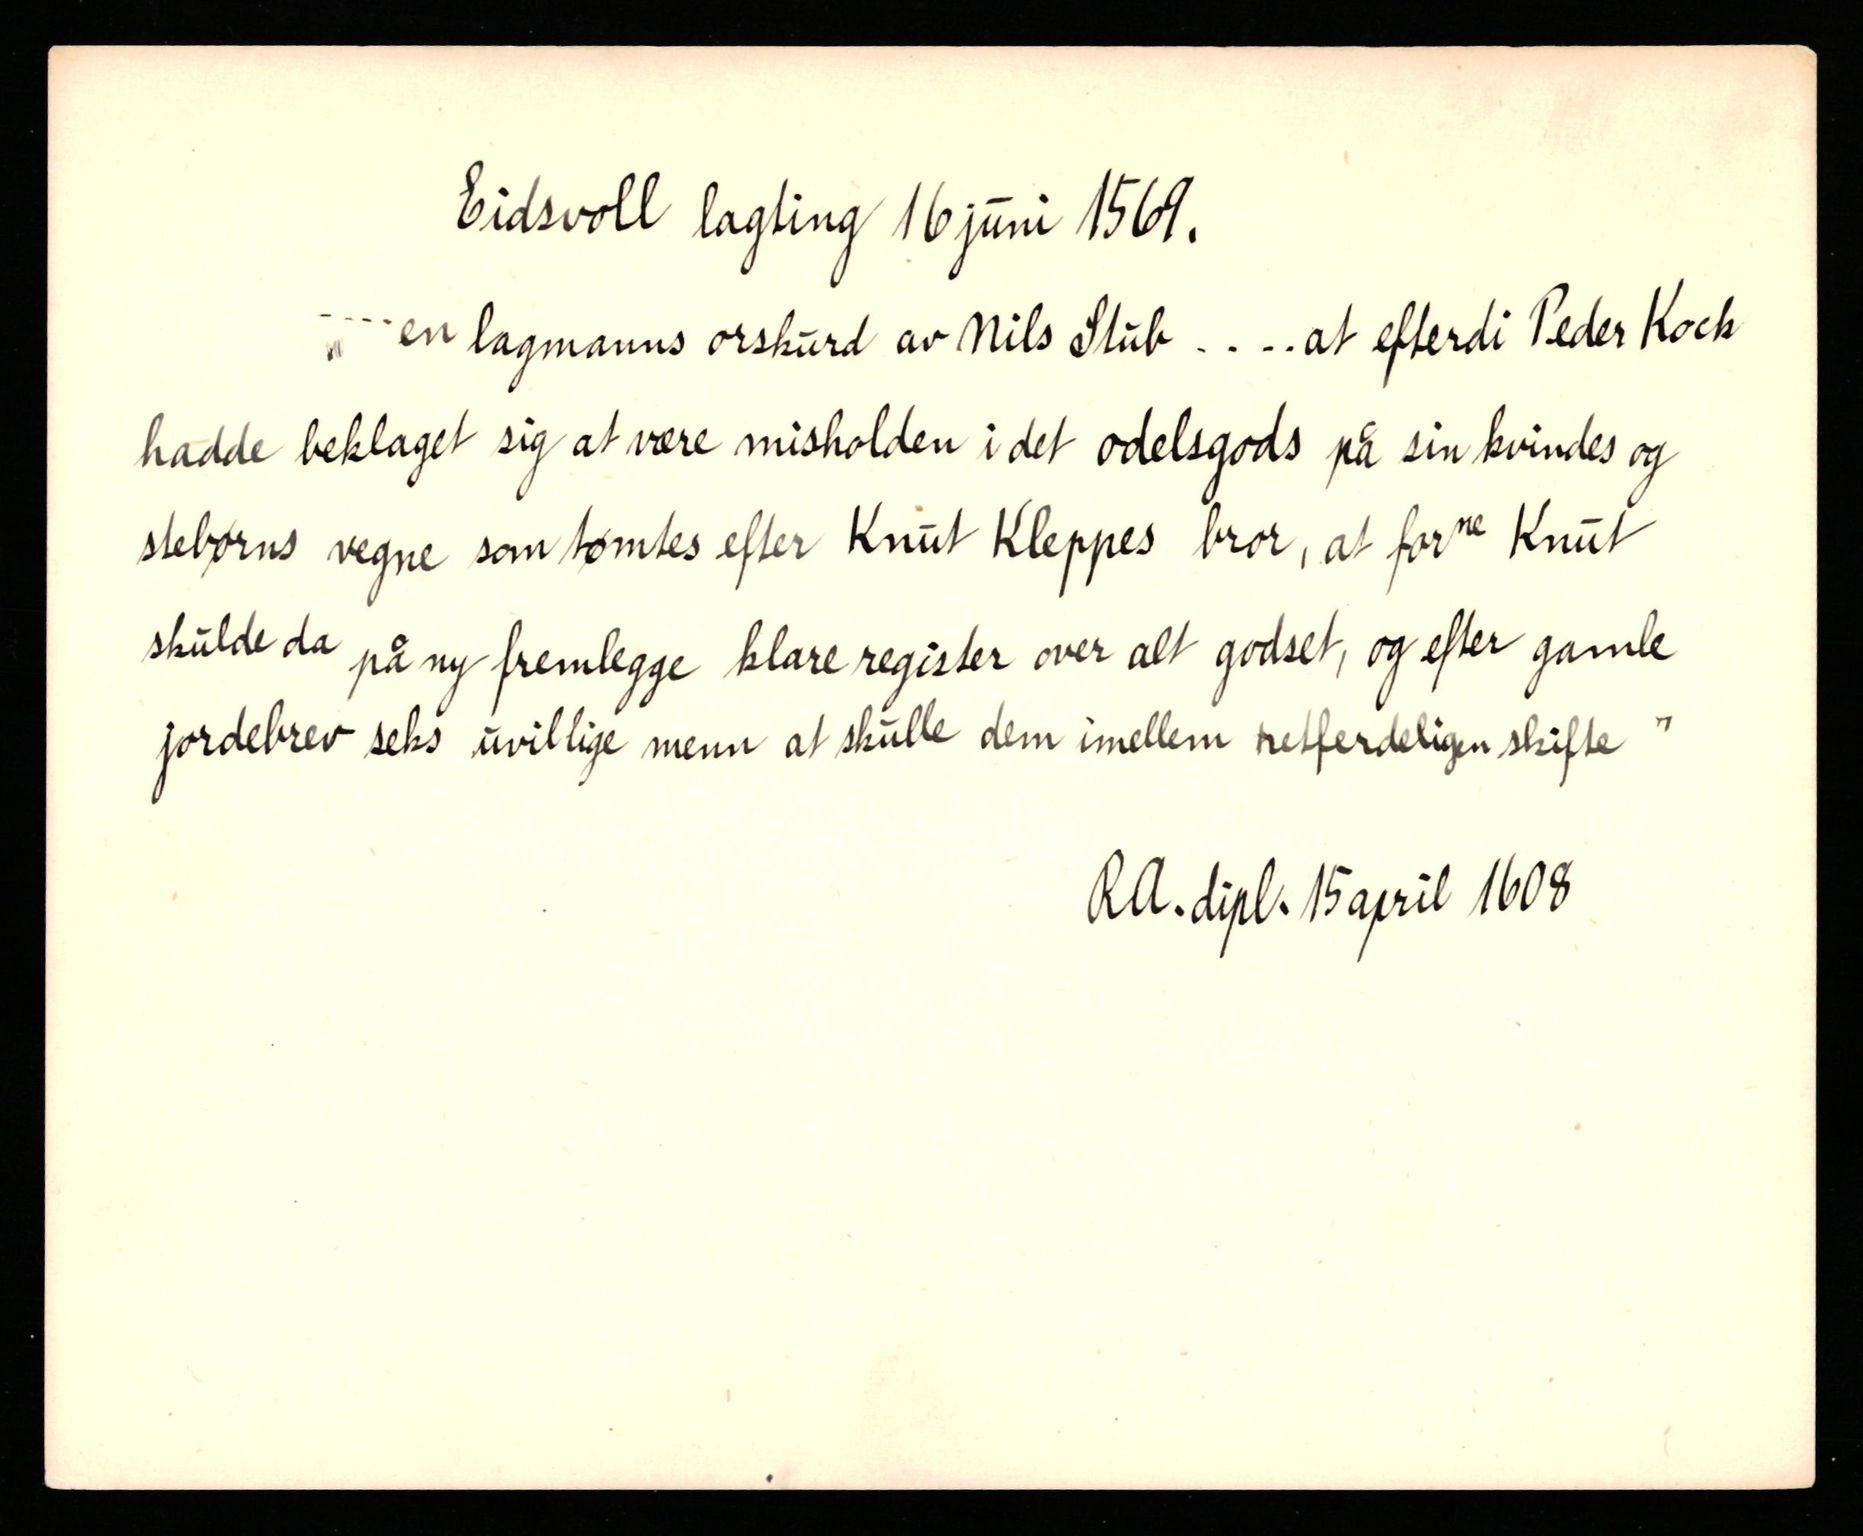 Eidsvoll lagting 16 juni 1569.
„ ---- en lagmanns orskurd av Nils Stub ..... at efterdi Peder Kock
hadde beklaget sig at være misholden i det odelsgods på sin kvindes og
stebørns vegne som tømtes efter Knut Kleppes bror, at forne Knut
skulde da på ny fremlegge klare register over alt godset, og efter gamle
jordebrev seks uvillige menn at skulle dem imellem retferdeligen skifte "
RA. dipl. 15 april 1608